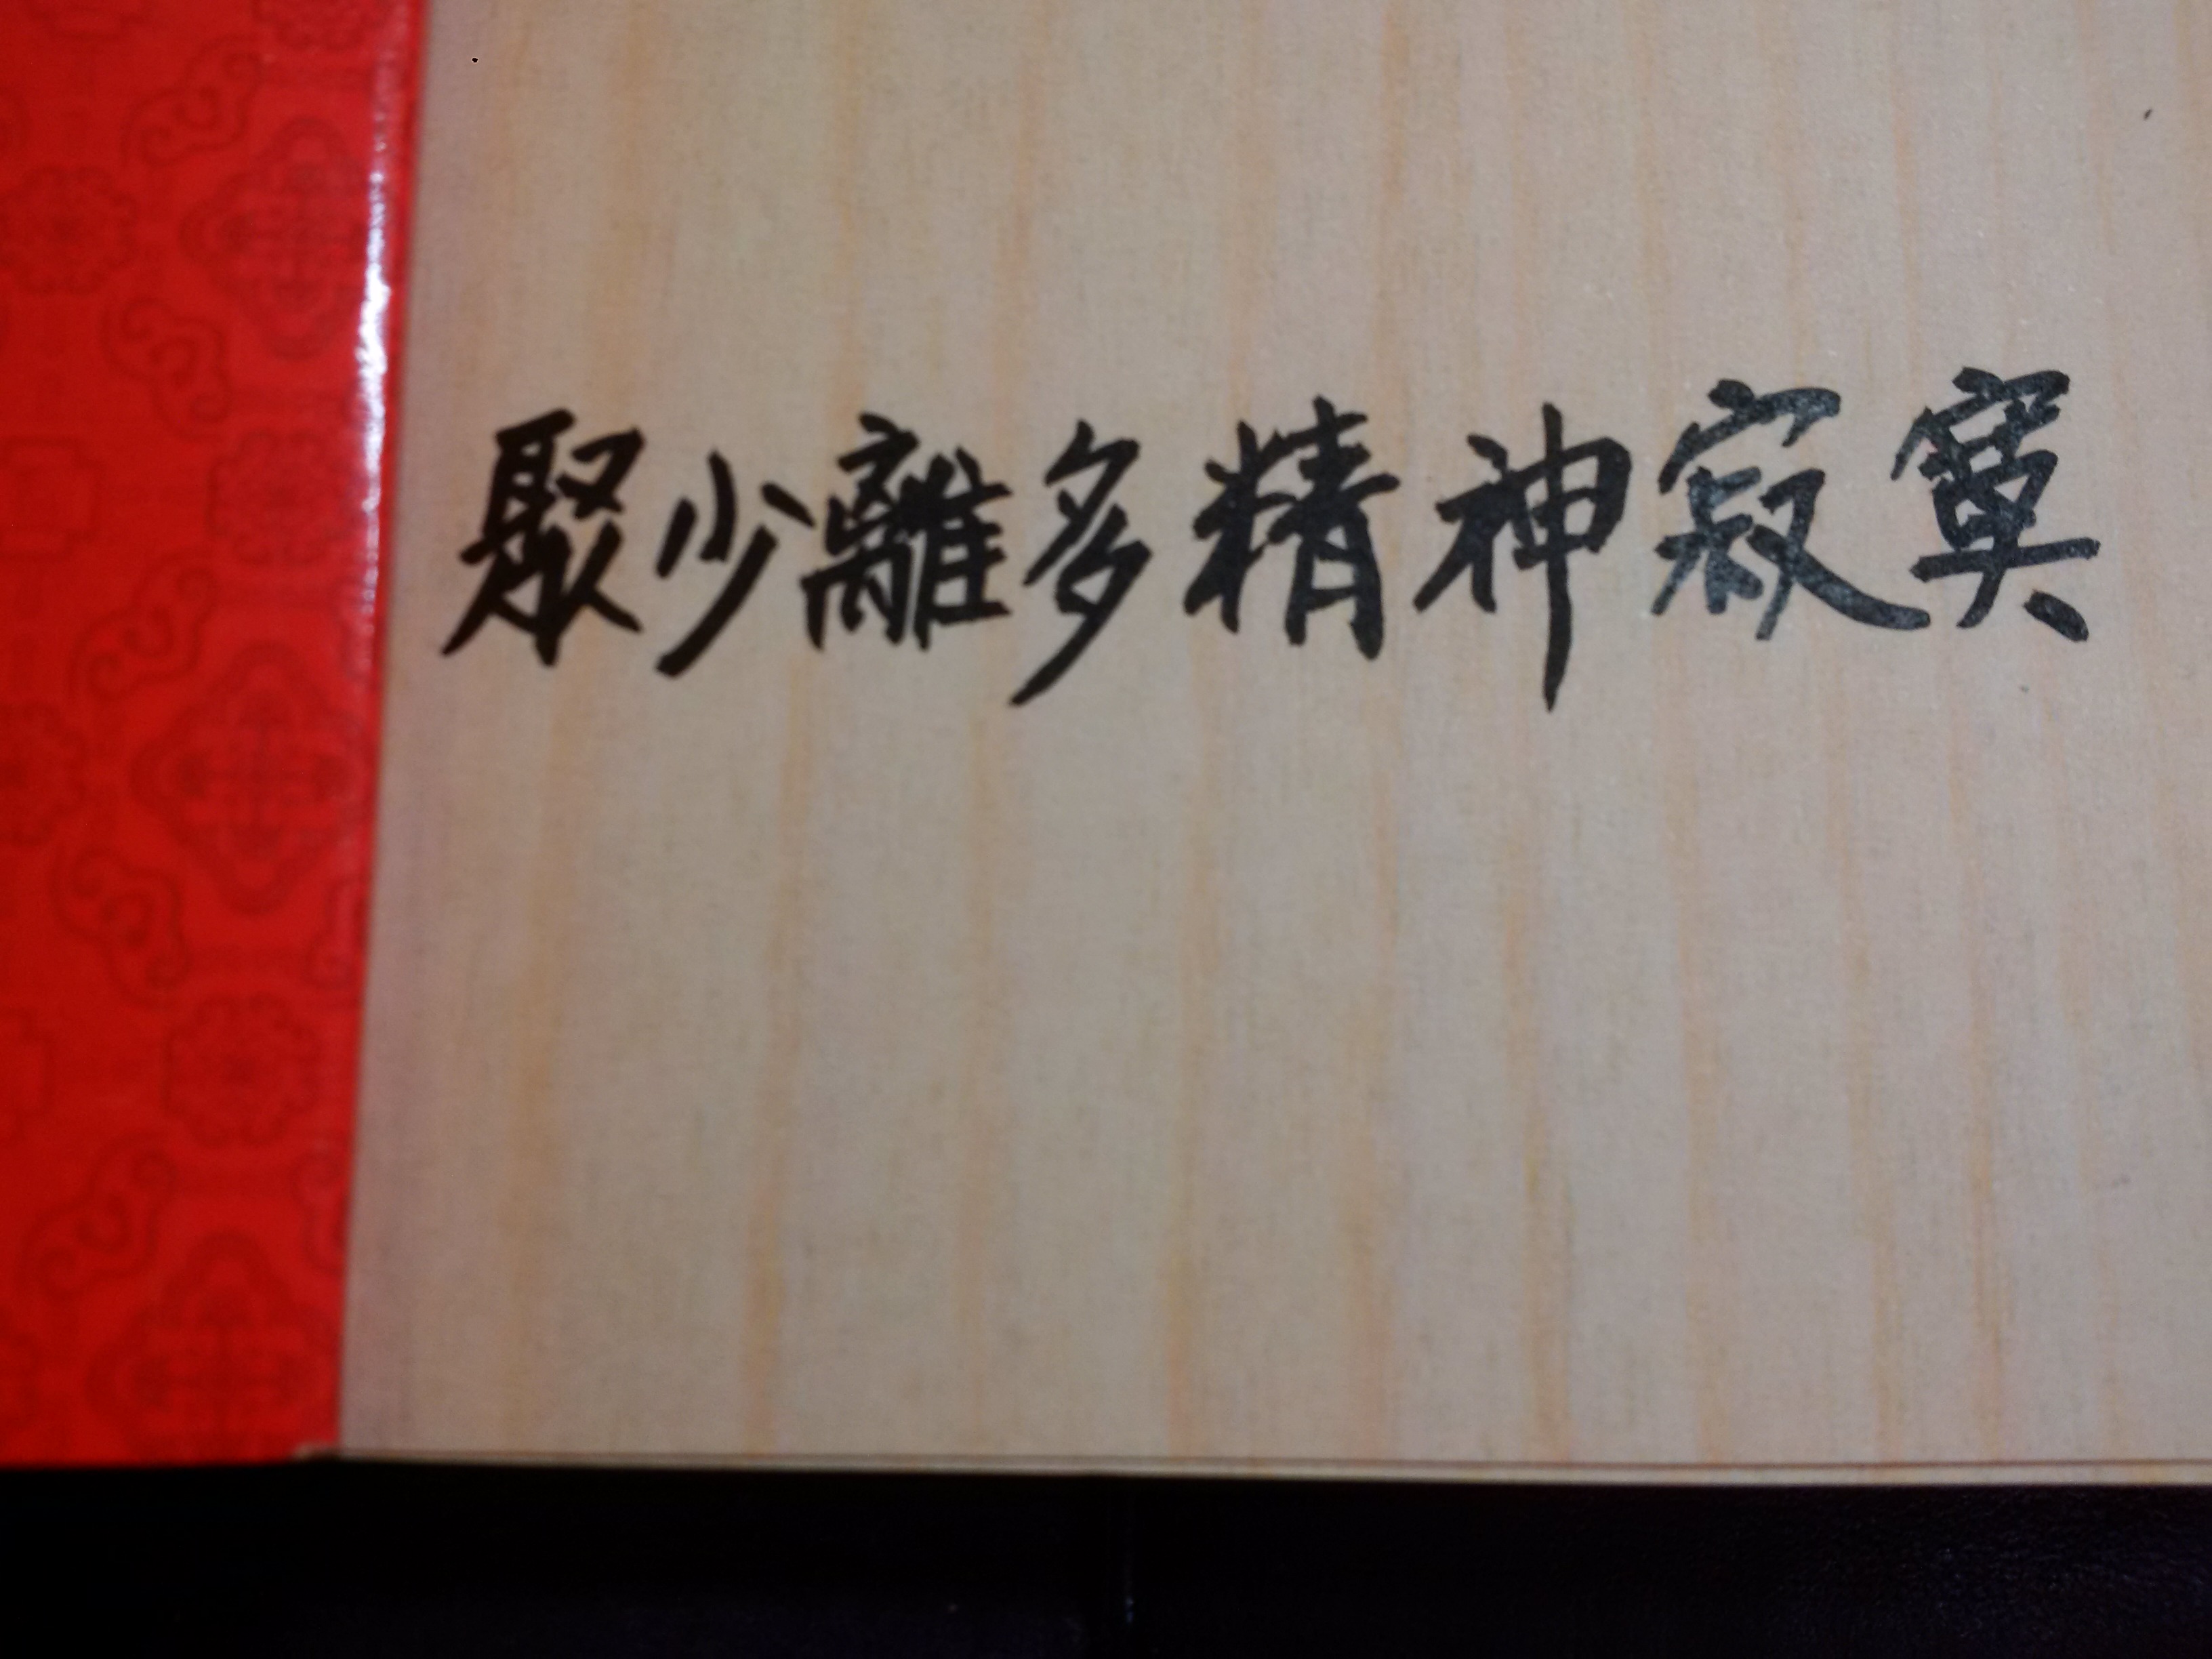 聚少離多精神寂寞